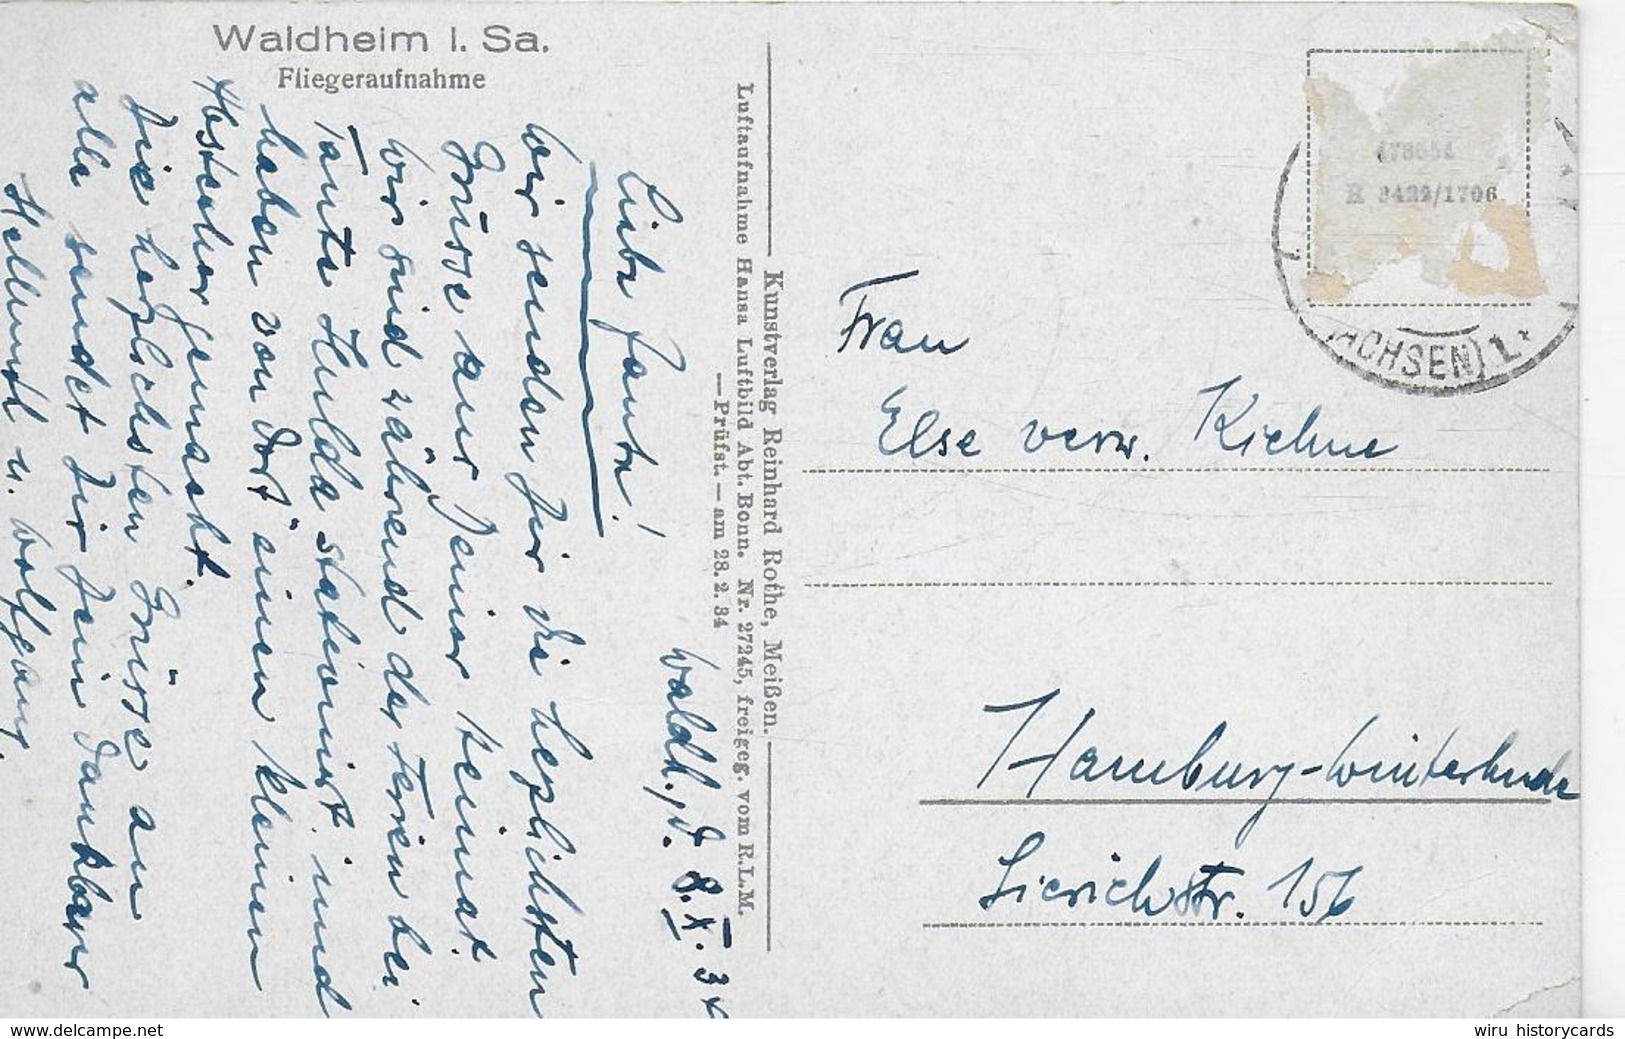 Waldheim i. Sa.
Fliegeraufnahme
Waldh., d. 8. X. 34
Liebe Tante!
Wir senden Dir die herzlichsten
Grüsse aus Deiner Heimat.
Wir sind während der Ferien bei
Tante Hulda stationirt und
haben von dort einen kleinen
Abstecher gemacht.
Die herzlichsten Grüsse an
alle sendet Dir Dein dankbarer
Hellmut u. Wolfgang.
Kunstverlag Reinhard Rothe, Meißen.
Luftaufnahme Hansa Luftbild Abt. Bonn. Nr. 27245, freigeg. vom R.L.M.
— Prüfst. — am 28. 2. 34
478654
R 3422/1706
ACHSEN) 1
Frau
Else verw. Kiehne
Hamburg-Winterhude
Sierichstr. 156
www.delcampe.net
wiru historycards